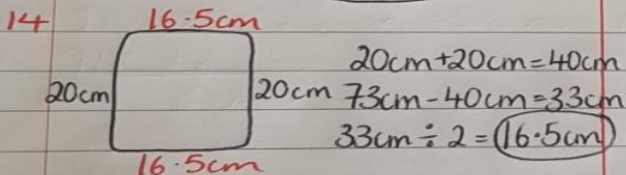 14
16.5cm
20cm
20cm
16.5cm
20cm+20cm=40cm
73cm-40cm=33cm
33cm÷2=16.5cm